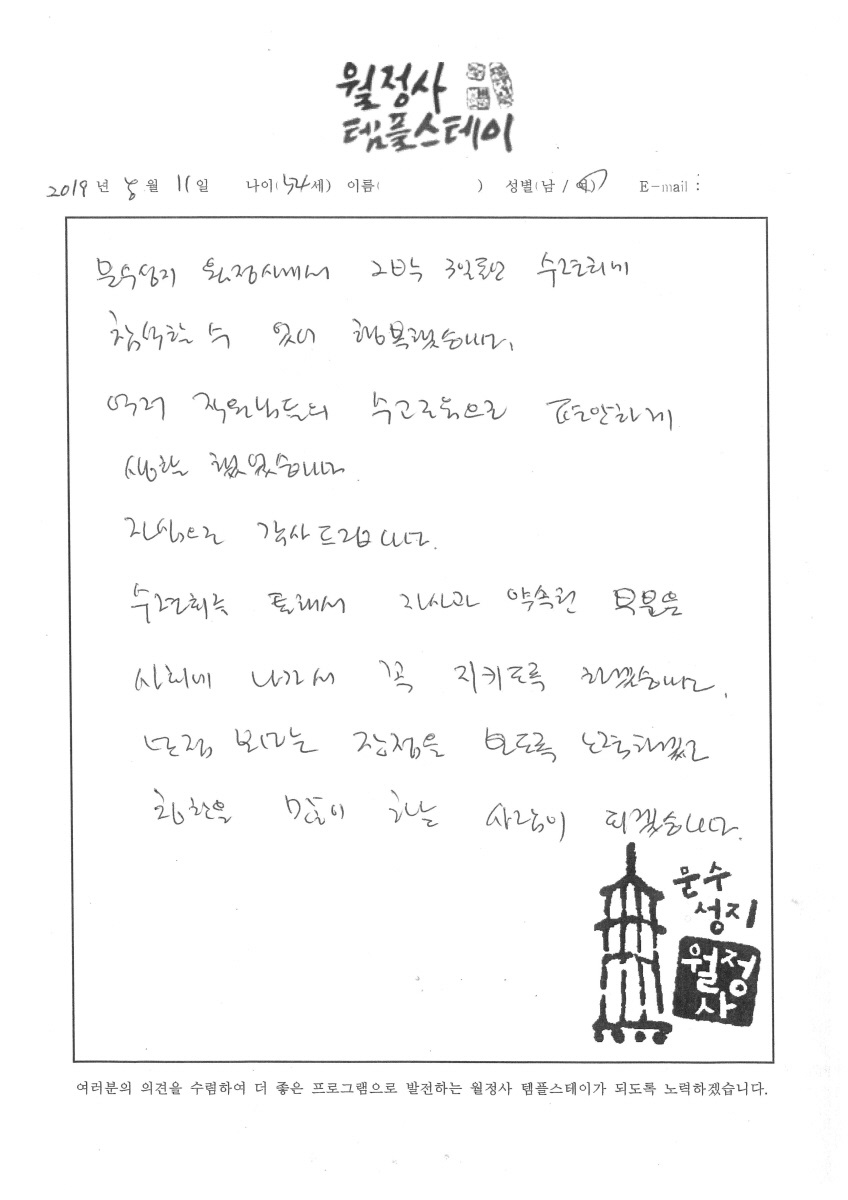 월정사
템플스테이
2019 년 월 11 일 나이( 세) 이름( ) 성별(남 / 여) E-mail :
문수성지 월정사에서 2박 3일동안 수련회에
참석할 수 있어 행복했습니다.
여러 직원님들의 수고로움으로 편안하게
생활 했었습니다.
진심으로 감사드립니다.
수련회를 통해서 자신과 약속한 덕목을
사회에 나가서 꼭 지키도록 하겠습니다.
단점 보다는 장점을 보도록 노력하겠고
칭찬을 많이 하는 사람이 되겠습니다.
문수
성지
월정
사
여러분의 의견을 수렴하여 더 좋은 프로그램으로 발전하는 월정사 템플스테이가 되도록 노력하겠습니다.